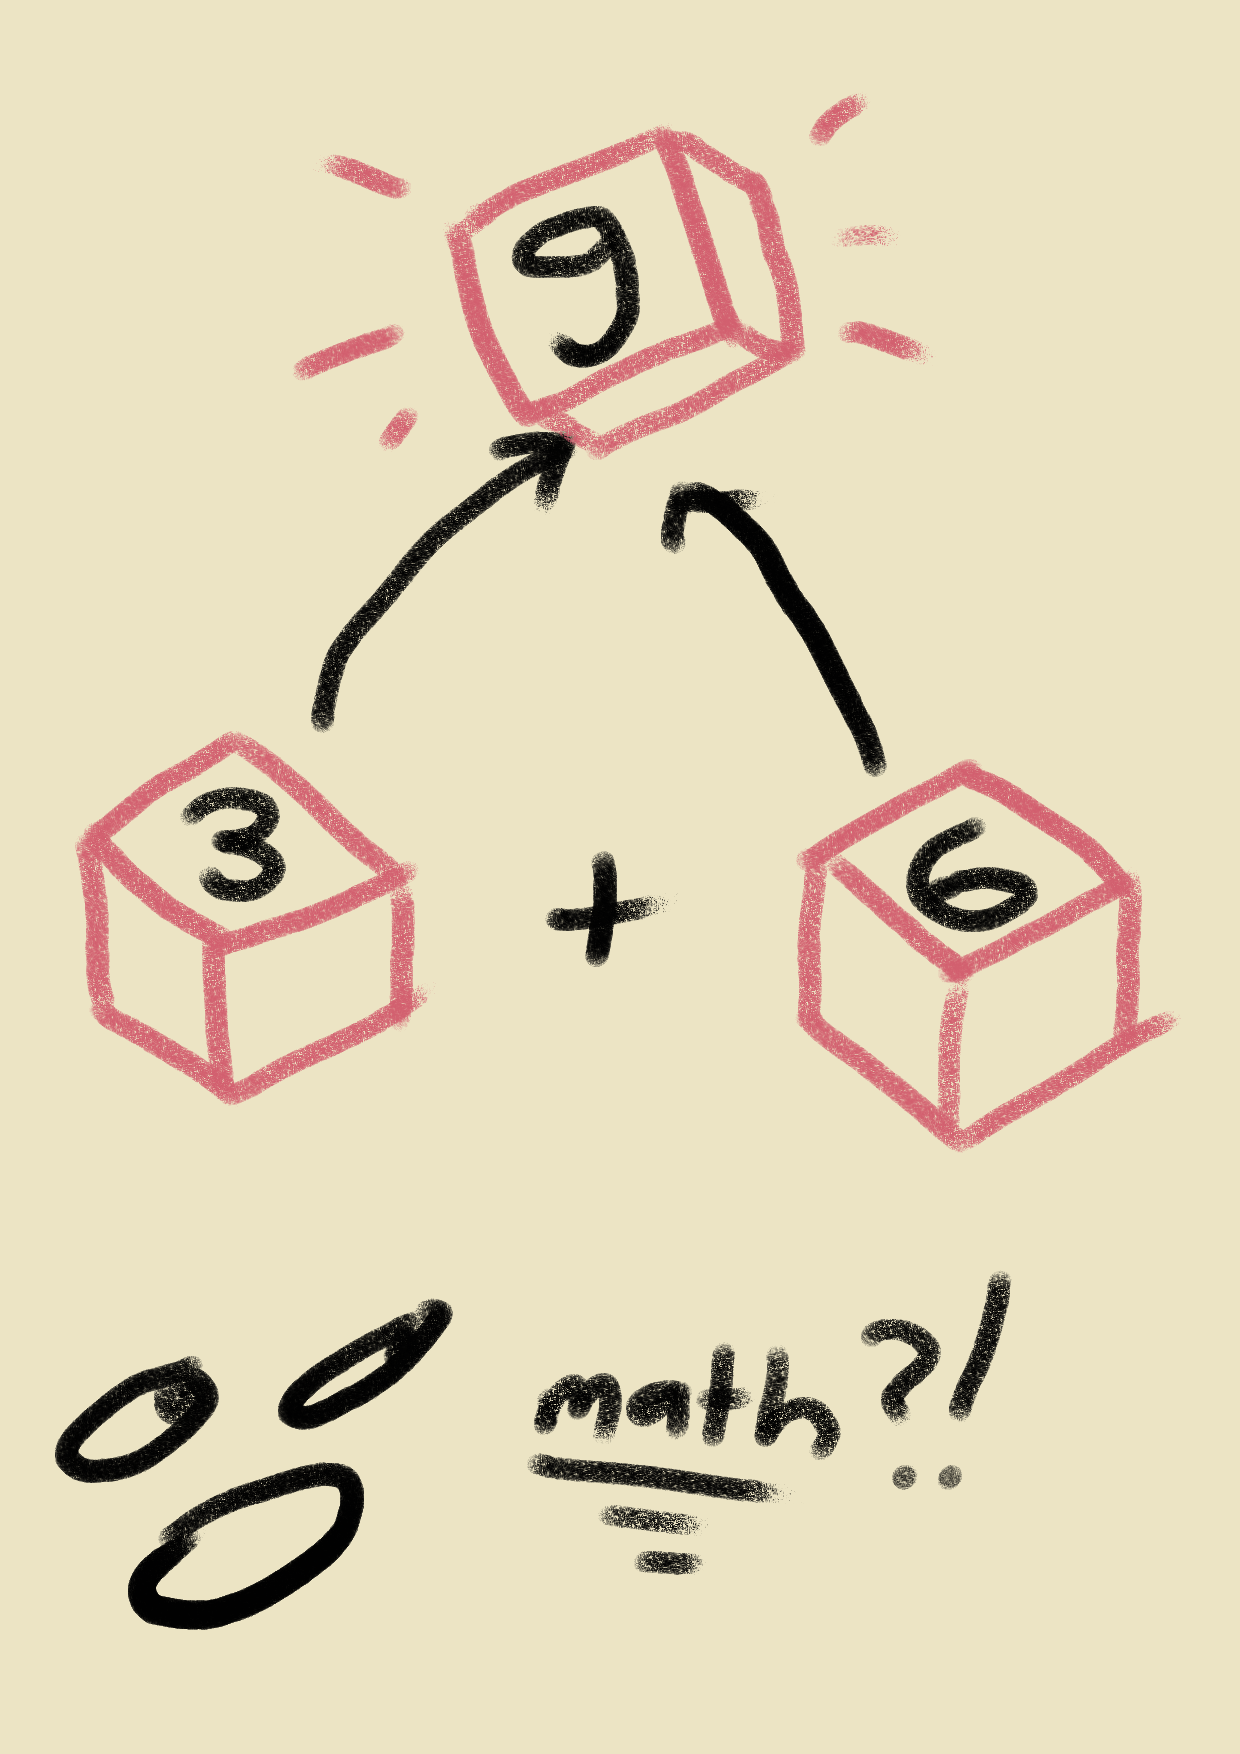 9
3 + 6
math?!